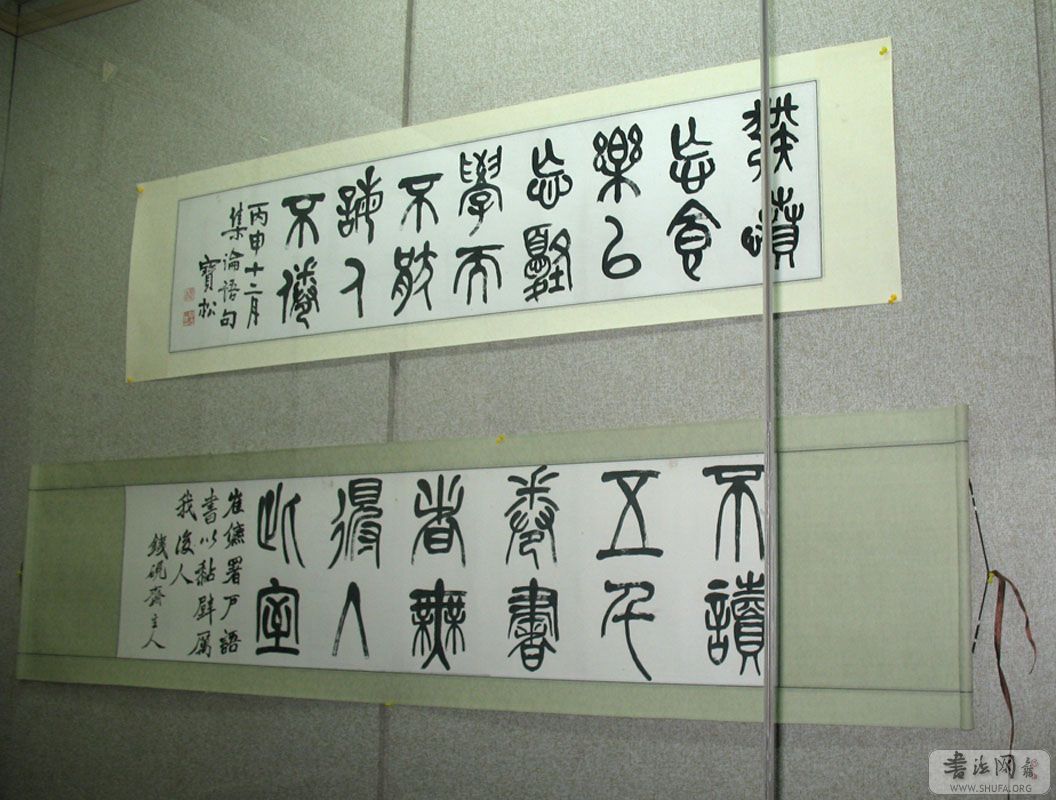 發憤
忘食
樂以
忘憂
學而
不厭
誨人
不倦
丙申十二月
集論語句
寶松
不讀
五千
卷書
者無
得入
此室
崔儦署戶語
書以黏壁属
我後人
錢硯齋主人
书法网
WWW.SHUFA.ORG